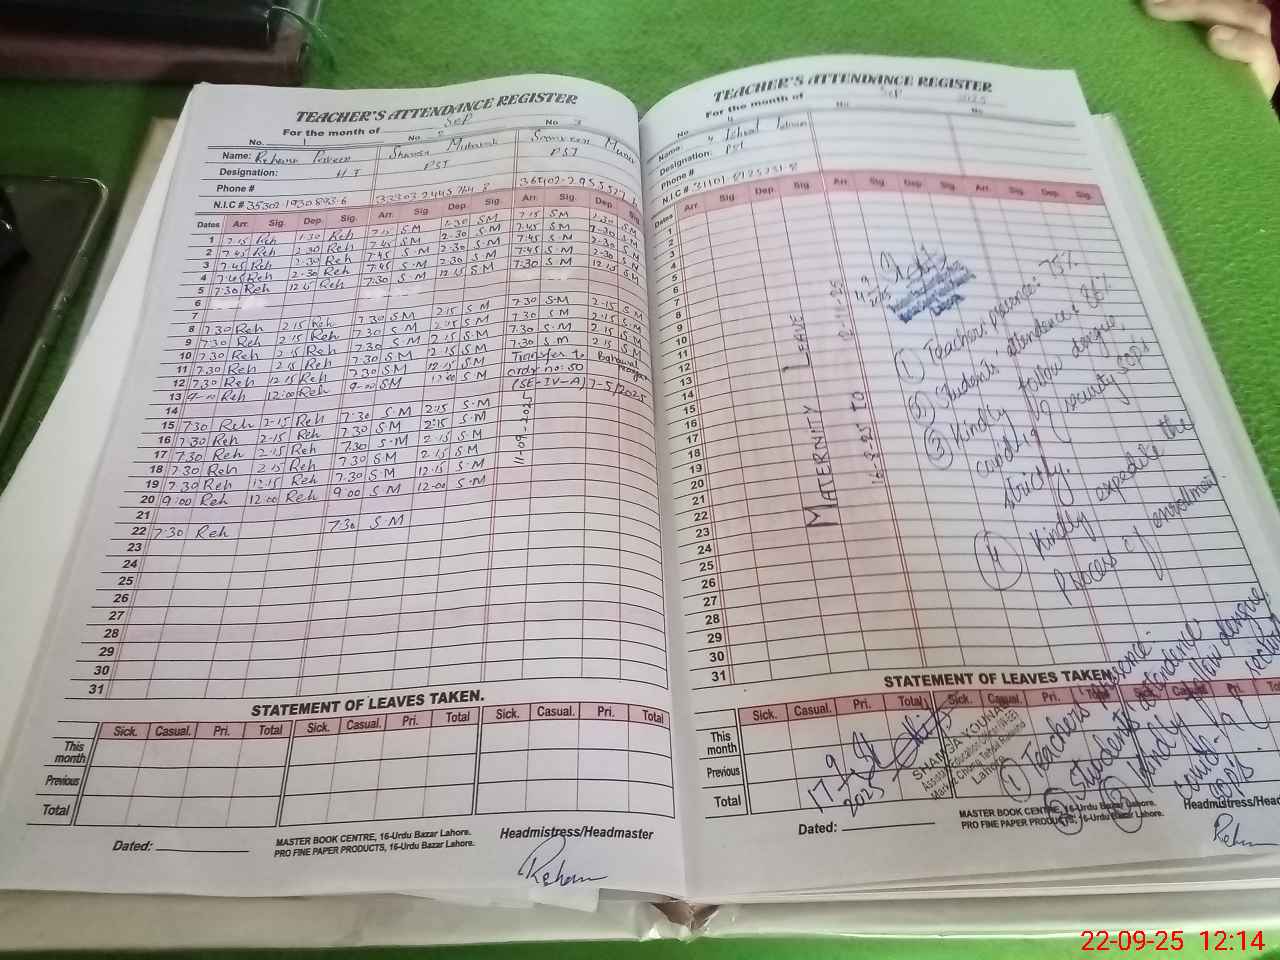 TEACHER'S ATTENDANCE REGISTER
For the month of Sep
No. 1 No. 2 No 3
Name: Rehana Parveen Shamsa Mubarak Muner
Designation: HT PST PST
Phone #
N.I.C #
Dates Arr. Sig. Dep. Sig. Arr. Sig. Dep. Sig. Arr. Sig. Dep. Sig.
1 7:15 Reh 1:30 Reh 7:15 S.M 1:30 SM 7:15 S.M 1:30 S.M
2 7:45 Reh 2:30 Reh 7:45 S.M 2:30 S.M 7:45 S.M 2:30 S.M
3 7:45 Reh 2:30 Reh 7:45 S.M 2:30 S.M 7:45 S.M 2:30 S.M
4 7:45 Reh 2:30 Reh 7:45 S.M 2:30 S.M 7:45 S.M 2:30 S.M
5 7:30 Reh 12:15 Reh 7:30 S.M 12:15 S.M 7:30 S.M 12:15 S.M
6
7
8 7:30 Reh 2:15 Reh 7:30 S.M 2:15 S.M 7:30 S.M 2:15 S.M
9 7:30 Reh 2:15 Reh 7:30 S.M 2:15 S.M 7:30 S.M 2:15 S.M
10 7:30 Reh 2:15 Reh 7:30 S.M 2:15 S.M 7:30 S.M 2:15 S.M
11 7:30 Reh 2:15 Reh 7:30 S.M 2:15 S.M 7:30 S.M 2:15 S.M
12 7:30 Reh 12:15 Reh 7:30 S.M 12:15 S.M Transfer to
13 9:00 Reh 12:00 Reh 9:00 S.M 12:00 S.M order no: 50
14 (SE-IV-A) 7-5/2025
15 7:30 Reh 2:15 Reh 7:30 S.M 2:15 S.M
16 7:30 Reh 2:15 Reh 7:30 S.M 2:15 S.M
17 7:30 Reh 2:15 Reh 7:30 S.M 2:15 S.M
18 7:30 Reh 2:15 Reh 7:30 S.M 2:15 S.M
19 7:30 Reh 12:15 Reh 7:30 S.M 12:15 S.M
20 9:00 Reh 12:00 Reh 9:00 S.M 12:00 S.M
21
22 7:30 Reh 7:30 S.M
23
24
25
26
27
28
29
30
31
STATEMENT OF LEAVES TAKEN.
Sick. Casual. Pri. Total Sick. Casual. Pri. Total Sick. Casual. Pri. Total
This month
Previous
Total
Dated:
MASTER BOOK CENTRE, 16-Urdu Bazar Lahore.
PRO FINE PAPER PRODUCTS, 16-Urdu Bazar Lahore.
Headmistress/Headmaster
TEACHER'S ATTENDANCE REGISTER
For the month of Sep 2025
No. 4 No. No.
Name:
Designation: PST
Phone #
N.I.C #
Dates Arr. Sig. Dep. Sig. Arr. Sig. Dep. Sig. Arr. Sig. Dep. Sig.
1
2
3
4
5
6
7
8
9
10
11
12
13
14
15
16
17
18
19
20
21
22
23
24
25
26
27
28
29
30
31
MATERNITY LEAVE
① Teachers' presence: 75%
② Students' attendance: 86%
③ Kindly follow dengue,
covid-19 security sops
strictly.
④ Kindly expedite the
Process of enrolment.
STATEMENT OF LEAVES TAKEN.
Sick. Casual. Pri. Total Sick. Casual. Pri. Total Sick. Casual. Pri. Total
This month
Previous
Total
17 9 2025
① Teachers presence
② Students attendance
③ Kindly follow dengue,
covid-19
sops.
Dated:
MASTER BOOK CENTRE, 16-Urdu Bazar Lahore.
PRO FINE PAPER PRODUCTS, 16-Urdu Bazar Lahore.
22-09-25 12:14